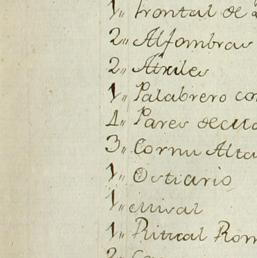 1,, Frontal de
2,, Alfombras
2,, Atriles
1,, Palabrero co
4,, Pares de
3,, Cornu Alta
1,, Ostiario
1,, Misal
1,, Ritual Rom
2,,